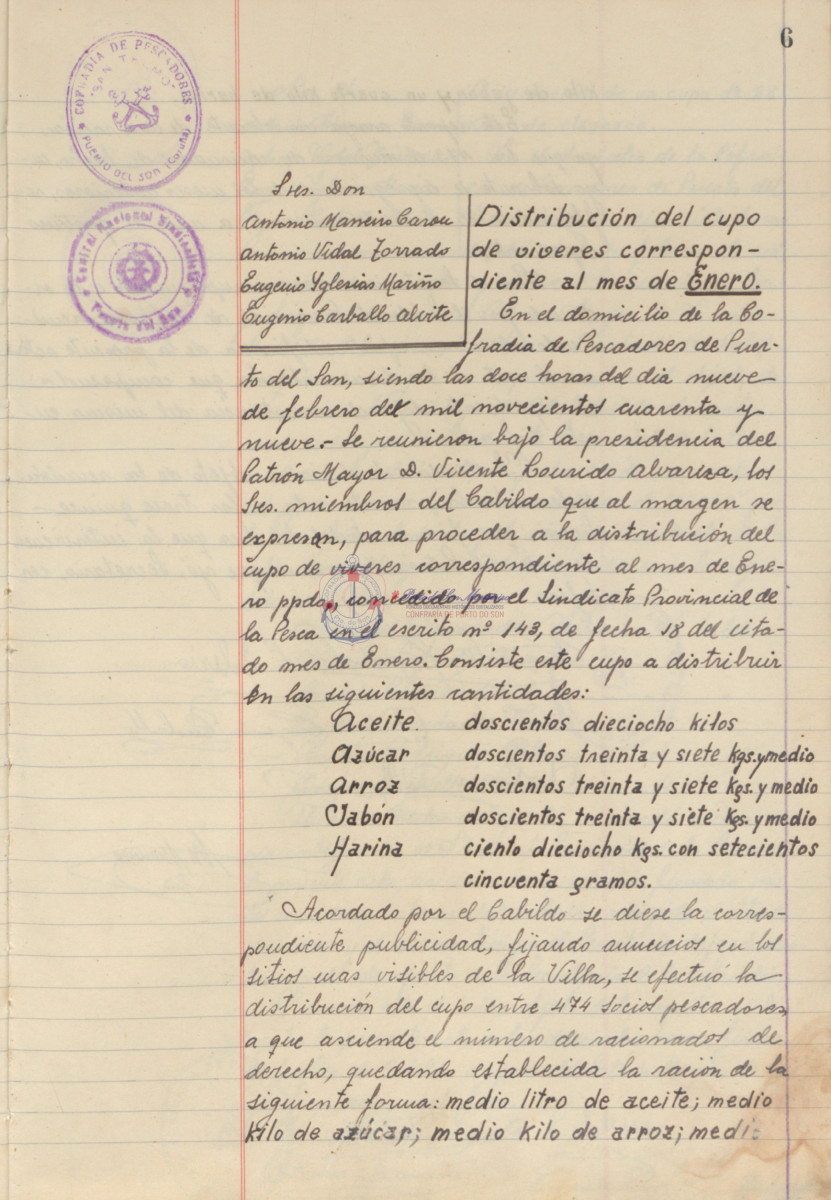 6
COFRADIA DE PESCADORES
"SAN TELMO"
PUERTO DEL SON (Coruña)
Sres. Don
Antonio Maneiro Carou
Antonio Vidal Torrado
Eugenio Yglesias Mariño
Eugenio Carballo Alvite
Central Nacional Sindicalista
Puerto del Son
Distribución del cupo
de viveres correspon-
diente al mes de Enero.
En el domicilio de la Co-
fradia de Pescadores de Puer-
to del Son, siendo las doce horas del dia nueve
de febrero de mil novecientos cuarenta y
nueve.- Se reunieron bajo la presidencia del
Patrón Mayor D. Vicente Lourido Alvariza, los
Sres. miembros del Cabildo que al margen se
expresan, para proceder a la distribución del
cupo de viveres correspondiente al mes de Ene-
ro ppdo., concedido por el Sindicato Provincial de
la Pesca en el escrito nº 143, de fecha 18 del cita-
do mes de Enero. Consiste este cupo a distribuir
en las siguientes cantidades:
Aceite. doscientos dieciocho kilos
Azúcar doscientos treinta y siete kgs. y medio
Arroz doscientos treinta y siete kgs. y medio
Jabón doscientos treinta y siete kgs. y medio
Harina ciento dieciocho kgs. con setecientos
cincuenta gramos.
Acordado por el Cabildo se diese la corres-
pondiente publicidad, fijando anuncios en los
sitios mas visibles de la Villa, se efectuó la
distribución del cupo entre 474 socios pescadores,
a que asciende el número de racionados de
derecho, quedando establecida la ración de la
siguiente forma: medio litro de aceite; medio
kilo de azúcar; medio kilo de arroz; medio
CONFRARIA DE PORTO DO SON